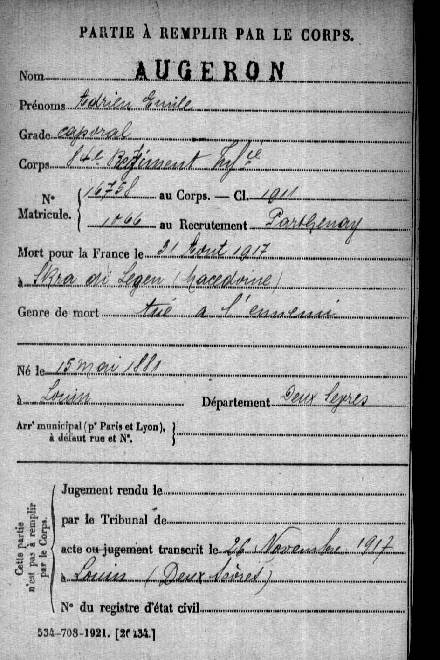 PARTIE À REMPLIR PAR LE CORPS.
Nom AUGERON
Prénoms Adrien Emile
Grade caporal
Corps 84e Régiment Infie
N° Matricule. 16758 au Corps. — Cl. 1911
1066 au Recrutement Parthenay
Mort pour la France le 21 Aout 1917
à Skra di Legen (Macedoine)
Genre de mort tué a l'ennemi
Né le 15 mai 1881
à Louin Département Deux Sevres
Arrt municipal (pr Paris et Lyon), à défaut rue et N°.
Cette partie n'est pas à remplir par le Corps.
Jugement rendu le
par le Tribunal de
acte ou jugement transcrit le 26 Novembre 1917
à Louin (Deux Sèvres)
N° du registre d'état civil
534-708-1921. [26434.]